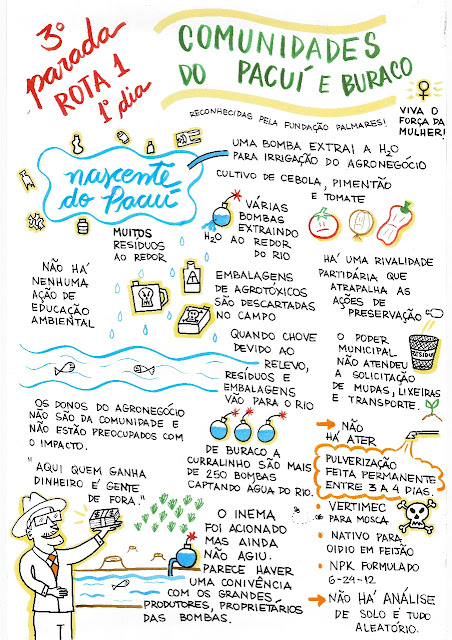 3º parada
ROTA 1
1º dia
COMUNIDADES
DO PACUÍ E BURACO
RECONHECIDAS PELA FUNDAÇÃO PALMARES!
VIVA O
FORÇA DA
MULHER!
nascente
do Pacuí
UMA BOMBA EXTRAI A H₂O
PARA IRRIGAÇÃO DO AGRONEGÓCIO
CULTIVO DE CEBOLA, PIMENTÃO
E TOMATE
VÁRIAS
BOMBAS
EXTRAINDO
H₂O AO REDOR
DO RIO
MUITOS
RESÍDUOS
AO REDOR
NÃO HÁ
NENHUMA
AÇÃO DE
EDUCAÇÃO
AMBIENTAL
EMBALAGENS
DE AGROTÓXICOS
SÃO DESCARTADAS
NO CAMPO
HÁ UMA RIVALIDADE
PARTIDÁRIA QUE
ATRAPALHA AS
AÇÕES DE
PRESERVAÇÃO
QUANDO CHOVE
DEVIDO AO
RELEVO,
RESÍDUOS E
EMBALAGENS
VÃO PARA O RIO
O PODER
MUNICIPAL
NÃO ATENDEU
A SOLICITAÇÃO
DE MUDAS, LIXEIRAS
E TRANSPORTE.
RESÍDUO
OS DONOS DO AGRONEGÓCIO
NÃO SÃO DA COMUNIDADE E
NÃO ESTÃO PREOCUPADOS COM
O IMPACTO.
DE BURACO A
CURRALINHO SÃO MAIS
DE 250 BOMBAS
CAPTANDO ÁGUA DO RIO.
NÃO
HÁ ATER
PULVERIZAÇÃO
FEITA PERMANENTE
ENTRE 3 A 4 DIAS.
• VERTIMEC
PARA MOSCA
• NATIVO PARA
OIDIO EM FEIJÃO
• NPK FORMULADO
6-24-12
NÃO HÁ ANÁLISE
DE SOLO E TUDO
ALEATÓRIO.
"AQUI QUEM GANHA
DINHEIRO É GENTE
DE FORA."
O INEMA
FOI ACIONADO
MAS AINDA
NÃO AGIU.
PARECE HAVER
UMA CONIVÊNCIA
COM OS GRANDES
PRODUTORES, PROPRIETÁRIOS
DAS BOMBAS.